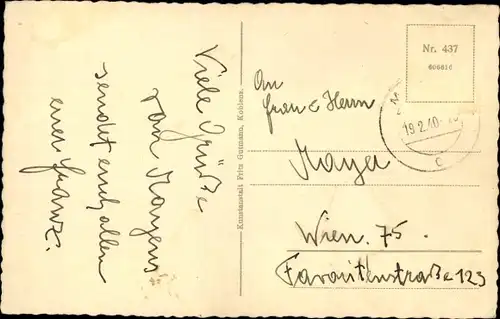 Viele Grüße
von Mayens
sendet euch allen
euer Franz.
Kunstanstalt Fritz Gutmann, Koblenz.
Nr. 437
606616
19.2.40
An
Frau & Herrn
Mayer
Wien. 75.
Favoritenstraße 123